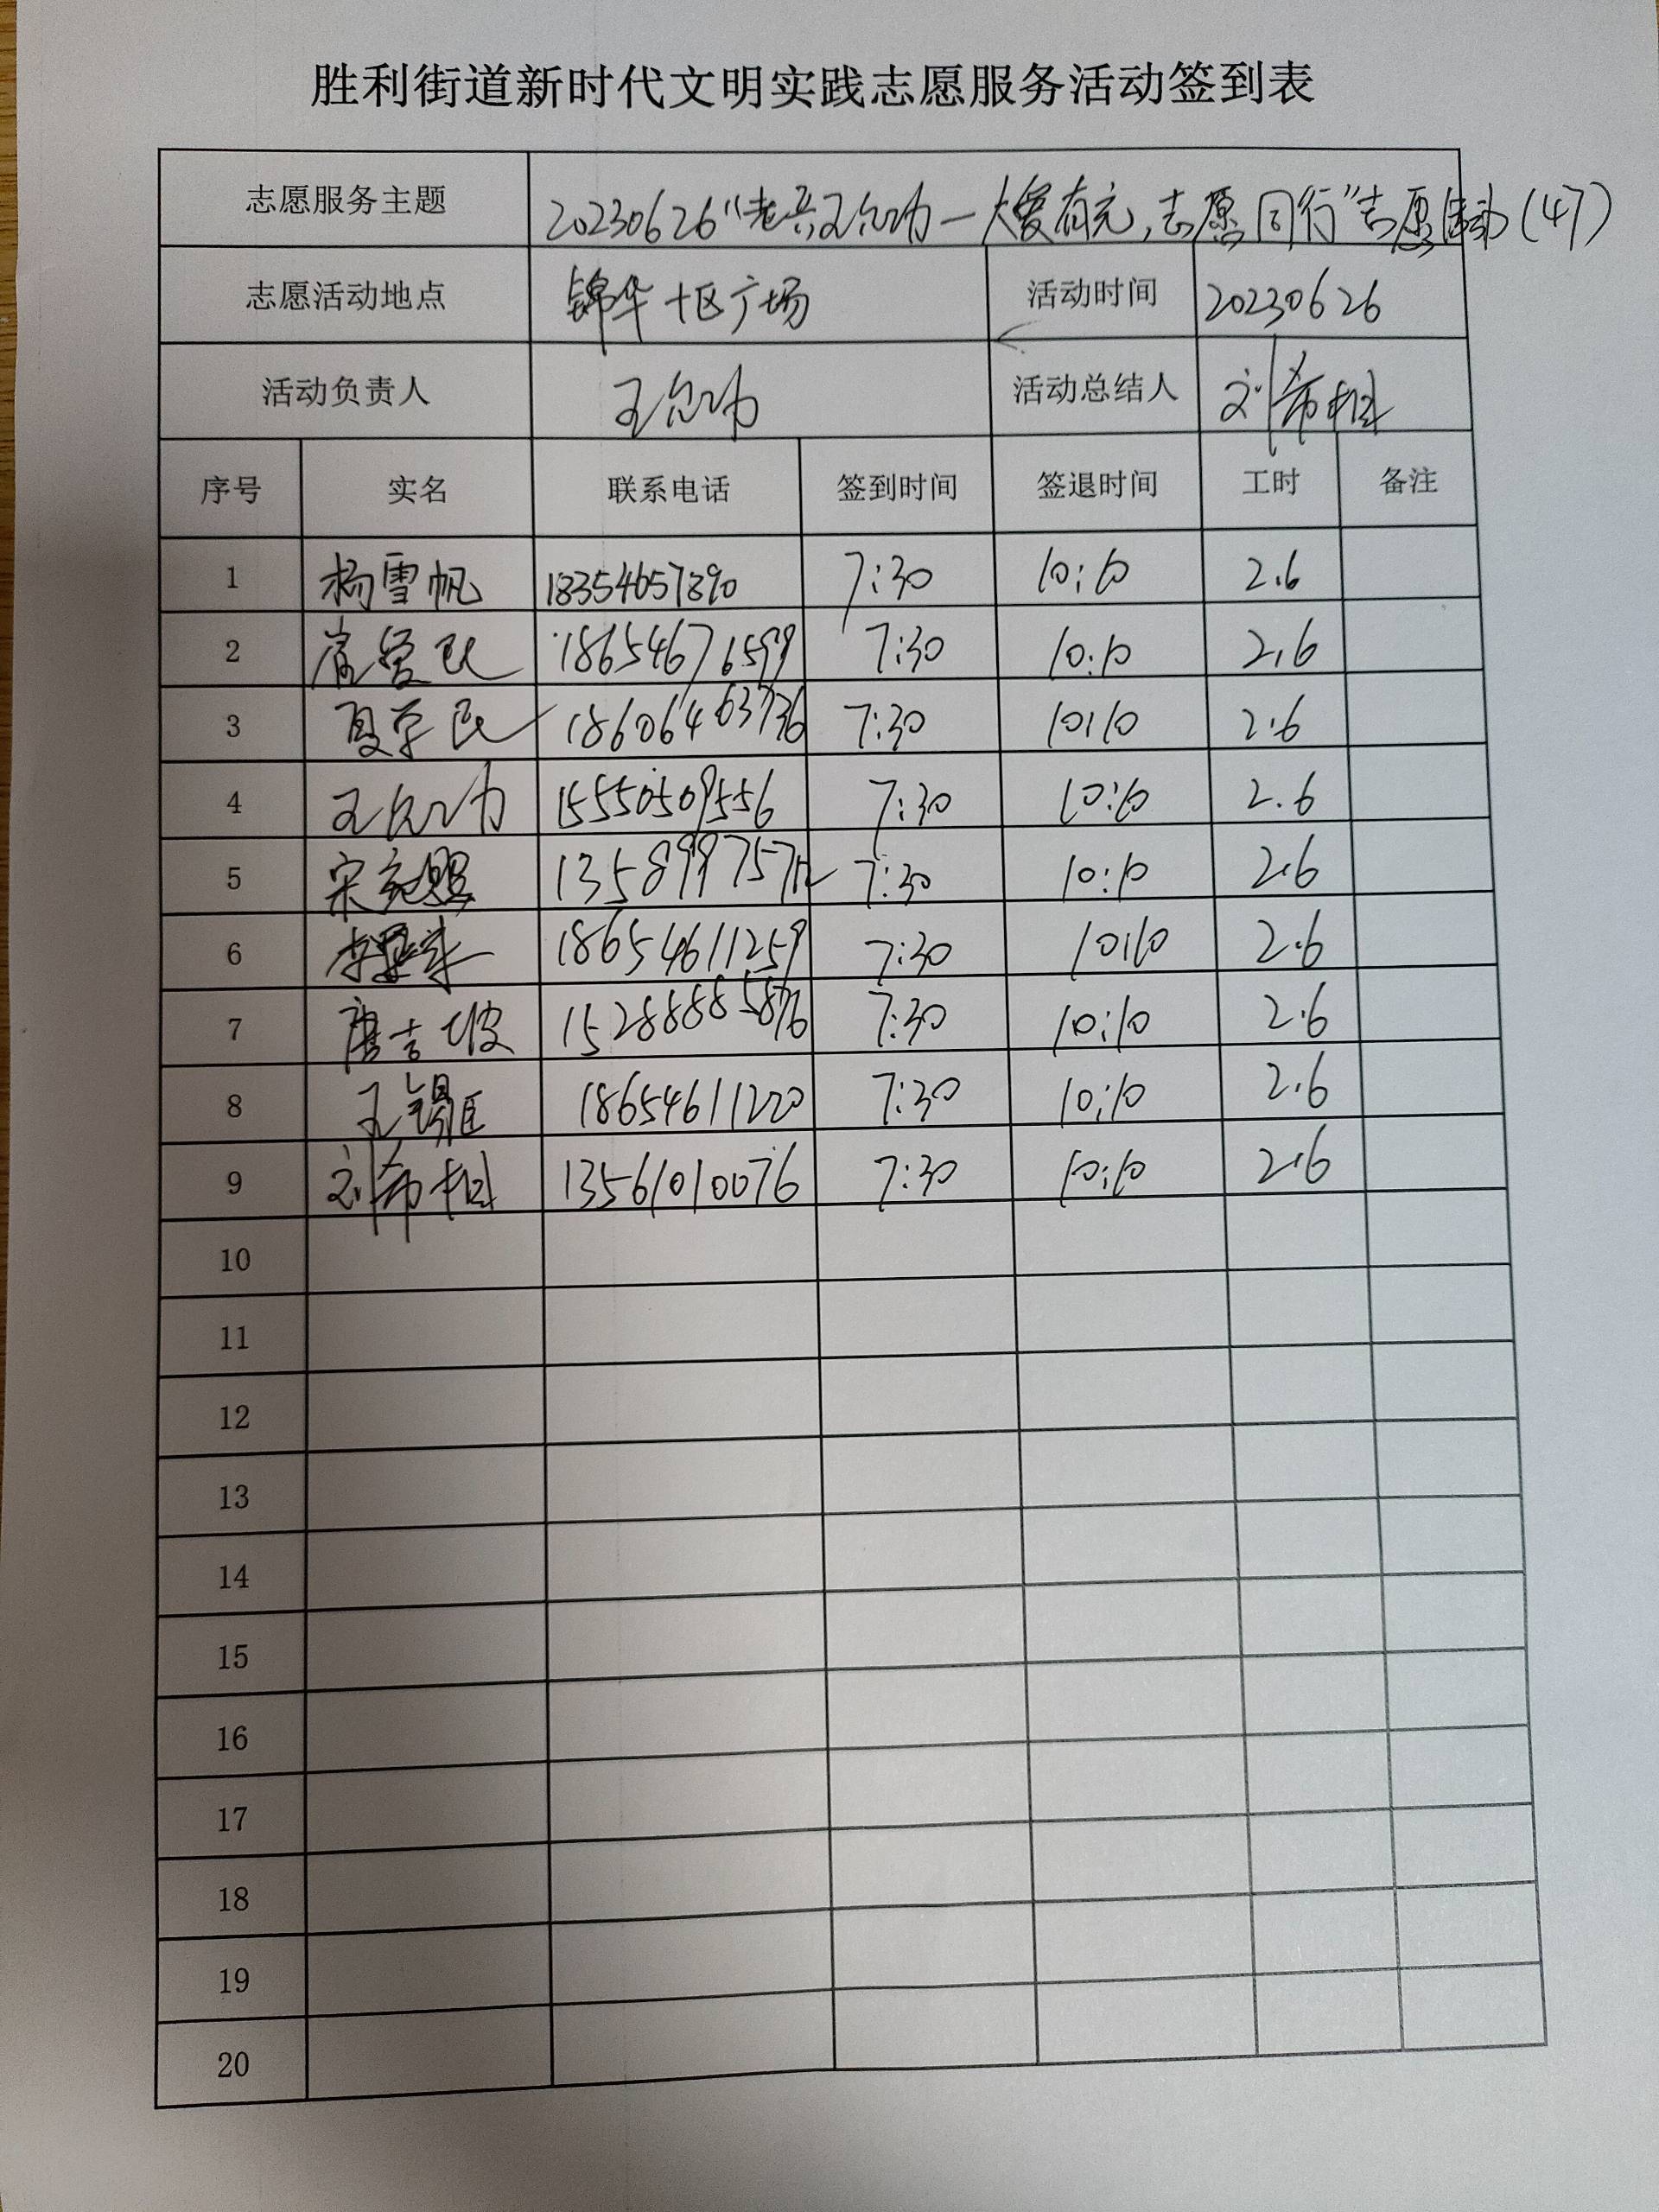 胜利街道新时代文明实践志愿服务活动签到表
志愿服务主题 20230626“老兵王允功—大爱有完,志愿同行”志愿活动(47)
志愿活动地点 锦华十区广场 活动时间 20230626
活动负责人 王允功 活动总结人 刘希桓
序号 实名 联系电话 签到时间 签退时间 工时 备注
1 杨雪帆 18354657890 7:30 10:10 2.6
2 崔爱民 18654676599 7:30 10:10 2.6
3 夏学民 18606463736 7:30 10:10 2.6
4 王允功 15550509556 7:30 10:10 2.6
5 宋 13589997572 7:30 10:10 2.6
6 李 18654611259 7:30 10:10 2.6
7 唐吉坡 15288885876 7:30 10:10 2.6
8 王锡臣 18654611220 7:30 10:10 2.6
9 刘希桓 13561010076 7:30 10:10 2.6
10
11
12
13
14
15
16
17
18
19
20